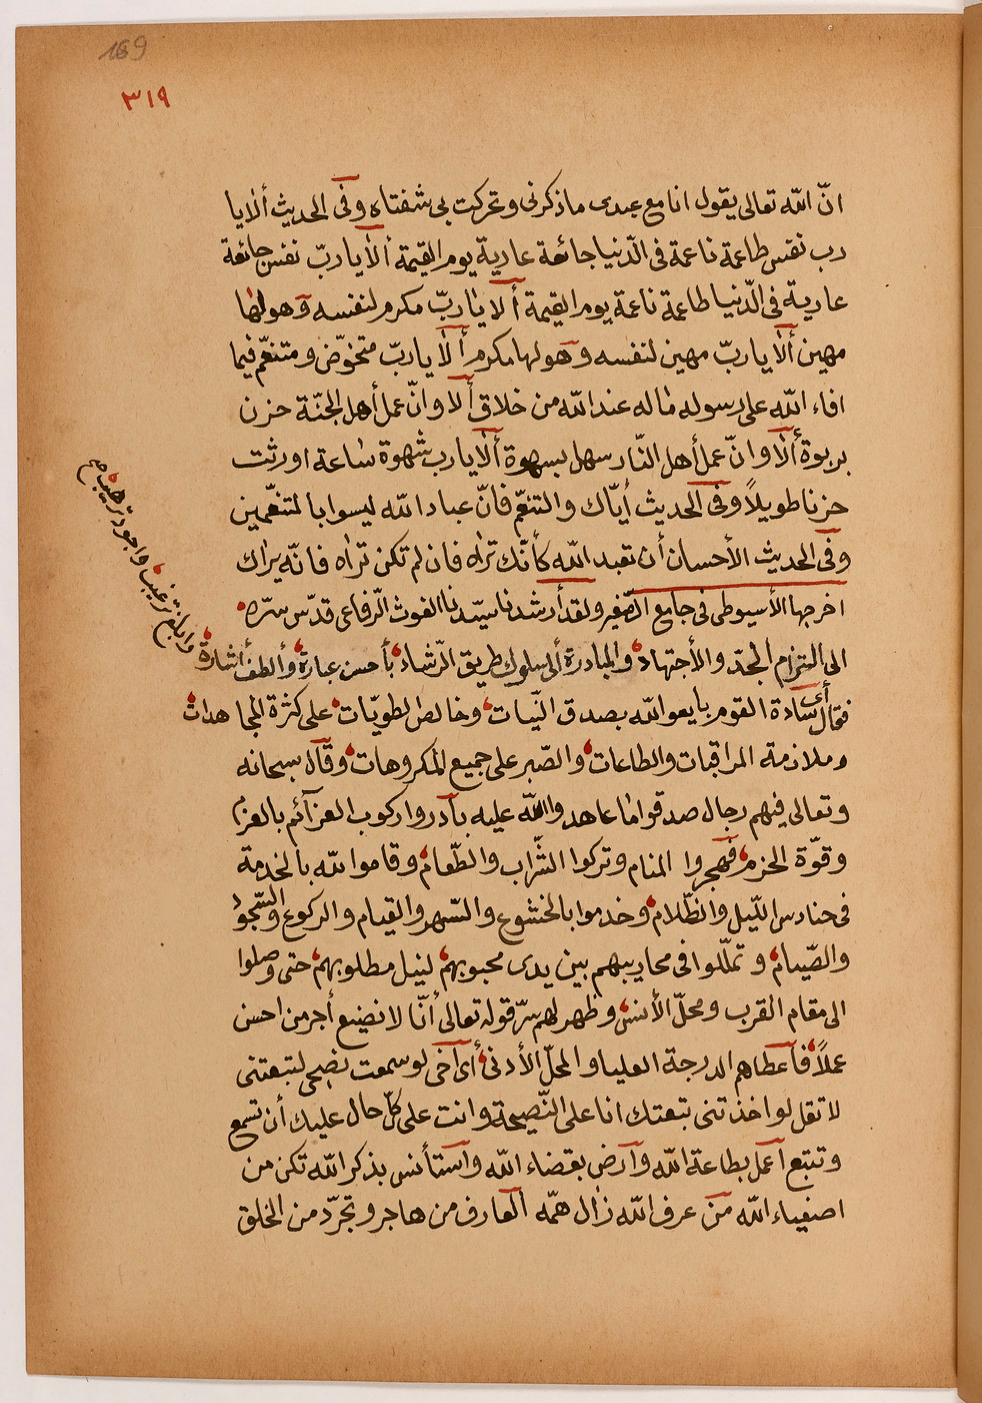 169
٣١٩
انّ الله تعالى يقول انا مع عبدى ما ذكرنى وتحركت بى شفتاه وفى الحديث ألا يا
رب نفس طاعمة ناعمة فى الدّنيا جائعة عارية يوم القيمة ألا يا ربّ نفس جائعة
عارية فى الدّنيا طاعمة ناعمة يوم القيمة ألا يا ربّ مكرم لنفسه وهو لها
مهين ألا يا ربّ مهين لنفسه وهو لها مكرم ألا يا ربّ متخوّض ومتنعّم فيما
افاء الله على رسوله ما له عند الله من خلاق ألا وانّ عمل أهل الجنّة حزن
بربوة ألا وانّ عمل أهل النّار سهل بسهوة ألا يا رب شهوة ساعة اورثت
حزنا طويلاً وفى الحديث أيّاك والتنعّم فانّ عباد الله ليسوا بالمتنعّمين
وفى الحديث الأحسان أن تعبد الله كأنّك تراه فان لم تكن تراه فانّه يراك
اخرجها الأسيوطى فى جامع الصّغير ولقد أرشدنا سيّدنا الغوث الرّفاعى قدّس سرّه
الى التزام الجدّ والأجتهاد والمبادرة ألى سلوك طريق الرّشاد بأحسن عبارة وألطف أشارة
وابلغ ترغيب واجود ترهيب صح
فقال أى سادة القوم بايعوا الله بصدق النّيات وخالص الطويّات على كثرة المجاهدات
وملازمة المراقبات والطاعات والصّبر على جميع المكروهات وقال سبحانه
وتعالى فيهم رجال صدقوا ما عاهدوا الله عليه بادروا ركوب العزآئم بالعز
وقوّة الحزم فهجروا المنام وتركوا الشّراب والطّعام وقاموا لله بالخدمة
فى حنادس اللّيل والظّلام وخدموا بالخشوع والسّهر والقيام والركوع والسّجود
والصّيام وتملّلوا فى محاريبهم بين يدى محبوبهم لنيل مطلوبهم حتى وصلوا
الى مقام القرب ومحلّ الأنس وظهر لهم سرّ قوله تعالى أنّا لا نضيع أجر من احسن
عملاً فاعطاهم الدرجة العليا والمحلّ الأدنى أى اخى لو سمعت نصحى لتبعتنى
لا تقل لو اخذتنى تبعتك انا على النّصيحة وانت على كلّ حال عليك أن تسمع
وتتبع اعمل بطاعة الله وارض بقضاء الله واستأنس بذكر الله تكن من
اصفياء الله من عرف الله زال همّه العارف من هاجر وتجرّد من الخلق